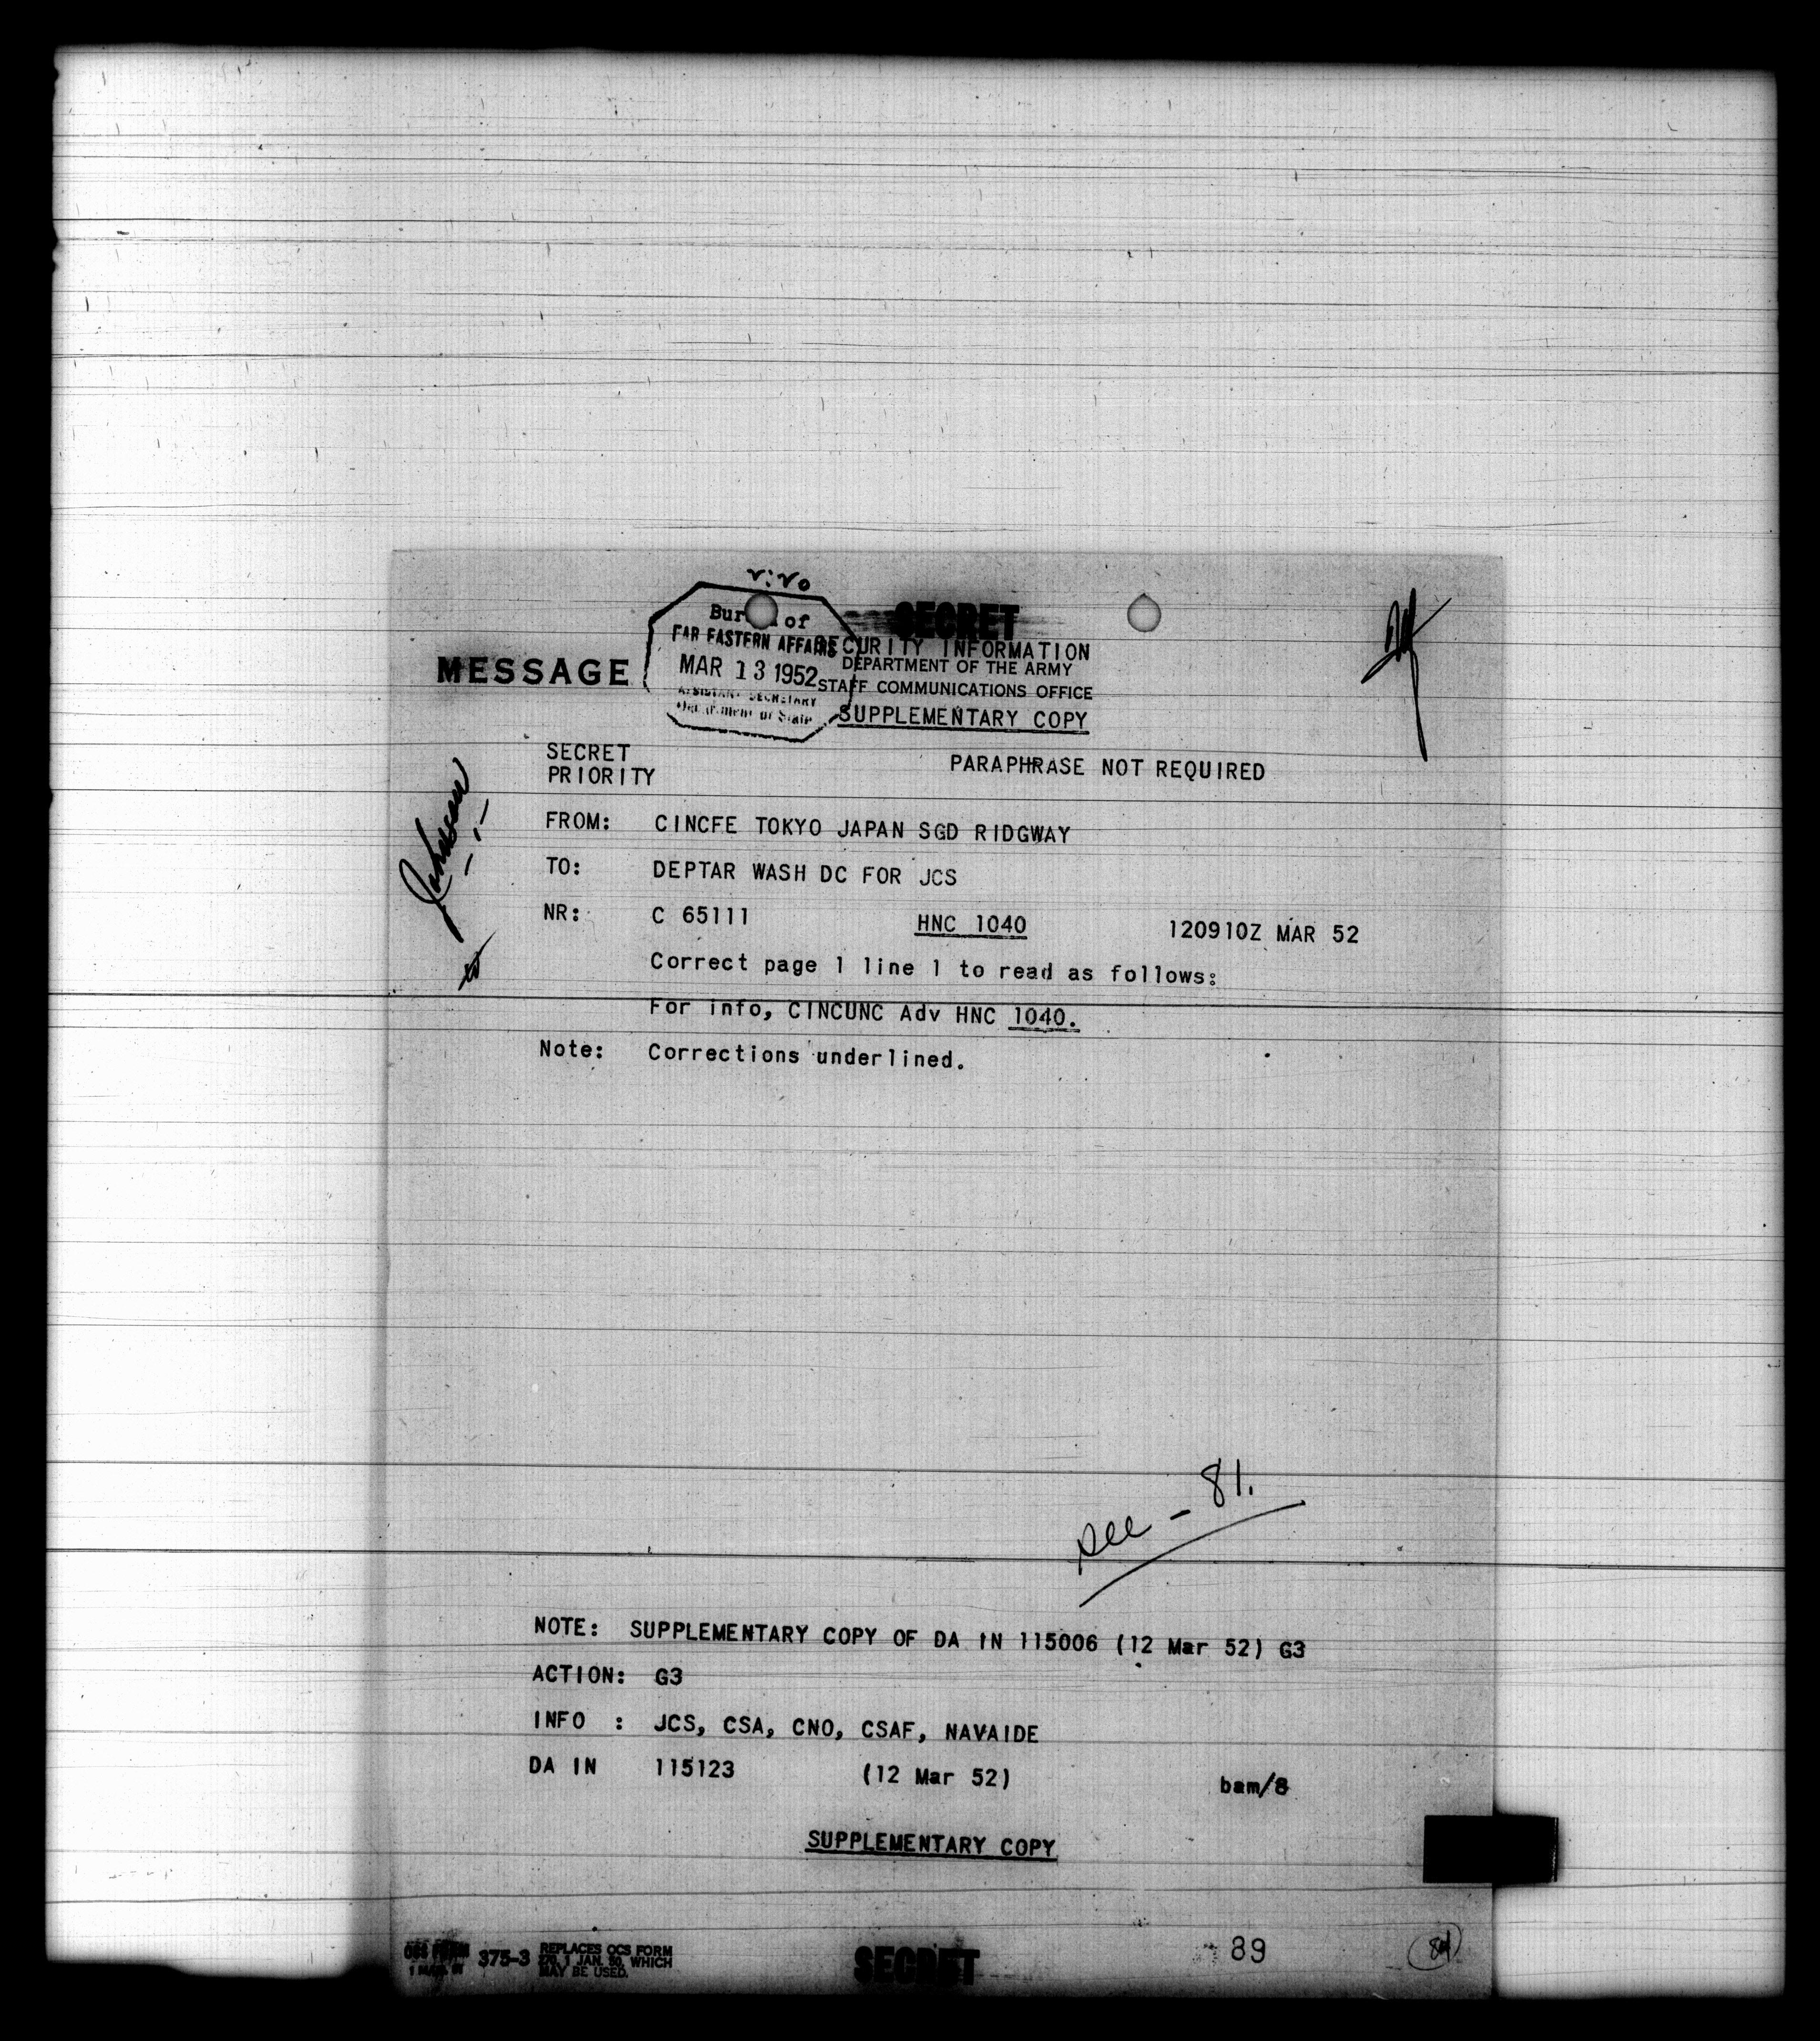 SECRET
Bureau of
FAR EASTERN AFFAIRS
SECURITY INFORMATION
MESSAGE
MAR 13 1952
DEPARTMENT OF THE ARMY
STAFF COMMUNICATIONS OFFICE
ASSISTANT SECRETARY
Department of State
SUPPLEMENTARY COPY
SECRET
PRIORITY
PARAPHRASE NOT REQUIRED
Johnson
FROM: CINCFE TOKYO JAPAN SGD RIDGWAY
TO: DEPTAR WASH DC FOR JCS
NR: C 65111 HNC 1040 120910Z MAR 52
Correct page 1 line 1 to read as follows:
For info, CINCUNC Adv HNC 1040.
Note: Corrections underlined.
see - 81.
NOTE: SUPPLEMENTARY COPY OF DA IN 115006 (12 Mar 52) G3
ACTION: G3
INFO : JCS, CSA, CNO, CSAF, NAVAIDE
DA IN 115123 (12 Mar 52) bam/8
SUPPLEMENTARY COPY
375-3 REPLACES OCS FORM
1 JAN. 50, WHICH
MAY BE USED.
SECRET
89